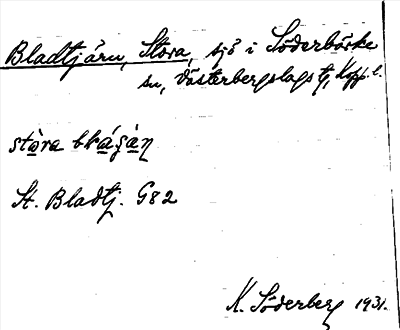 Bladtjärn, Stora, sjö i Söderbärke
sn, Västerbergslags tj, Kopp. l.
stòra
St. Bladtj. G82
K. Söderberg 1931.